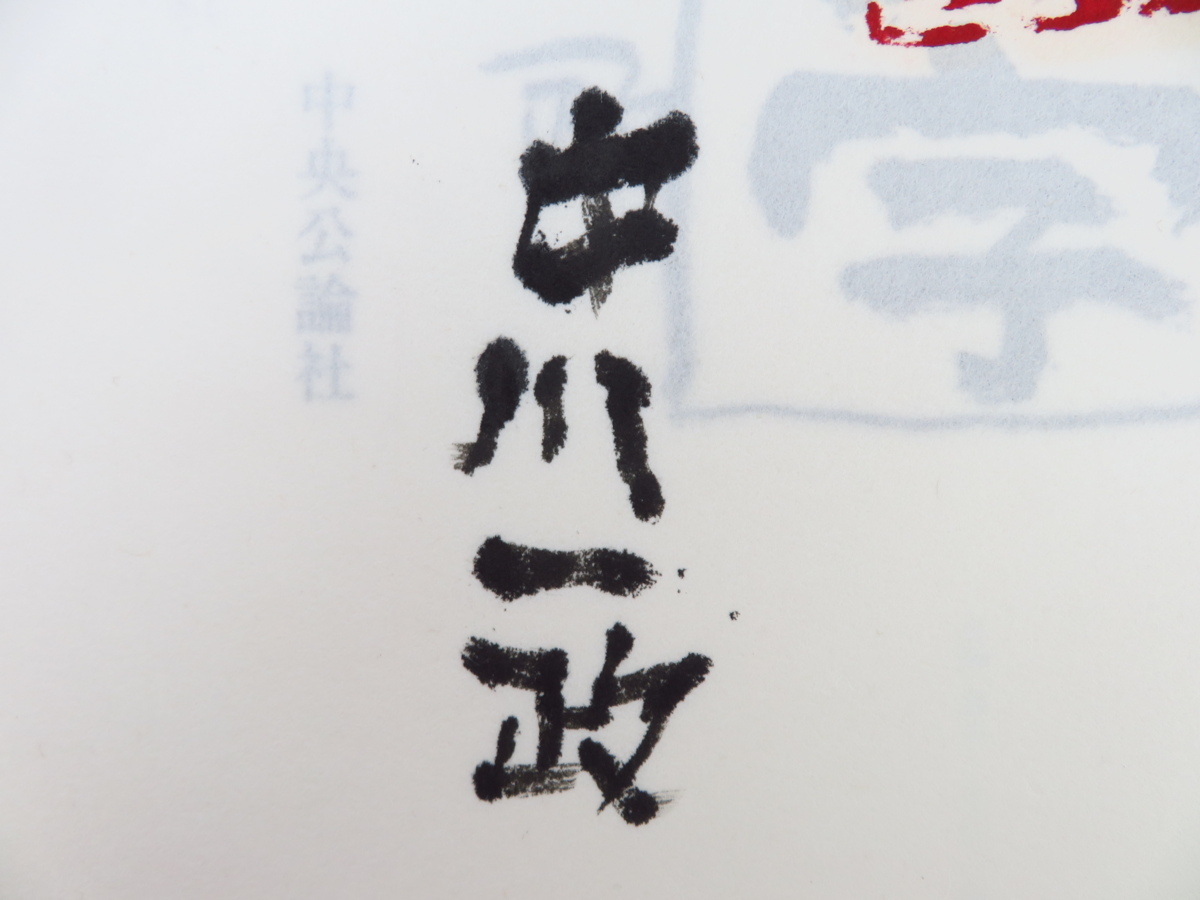 字
中川一政
中央公論社